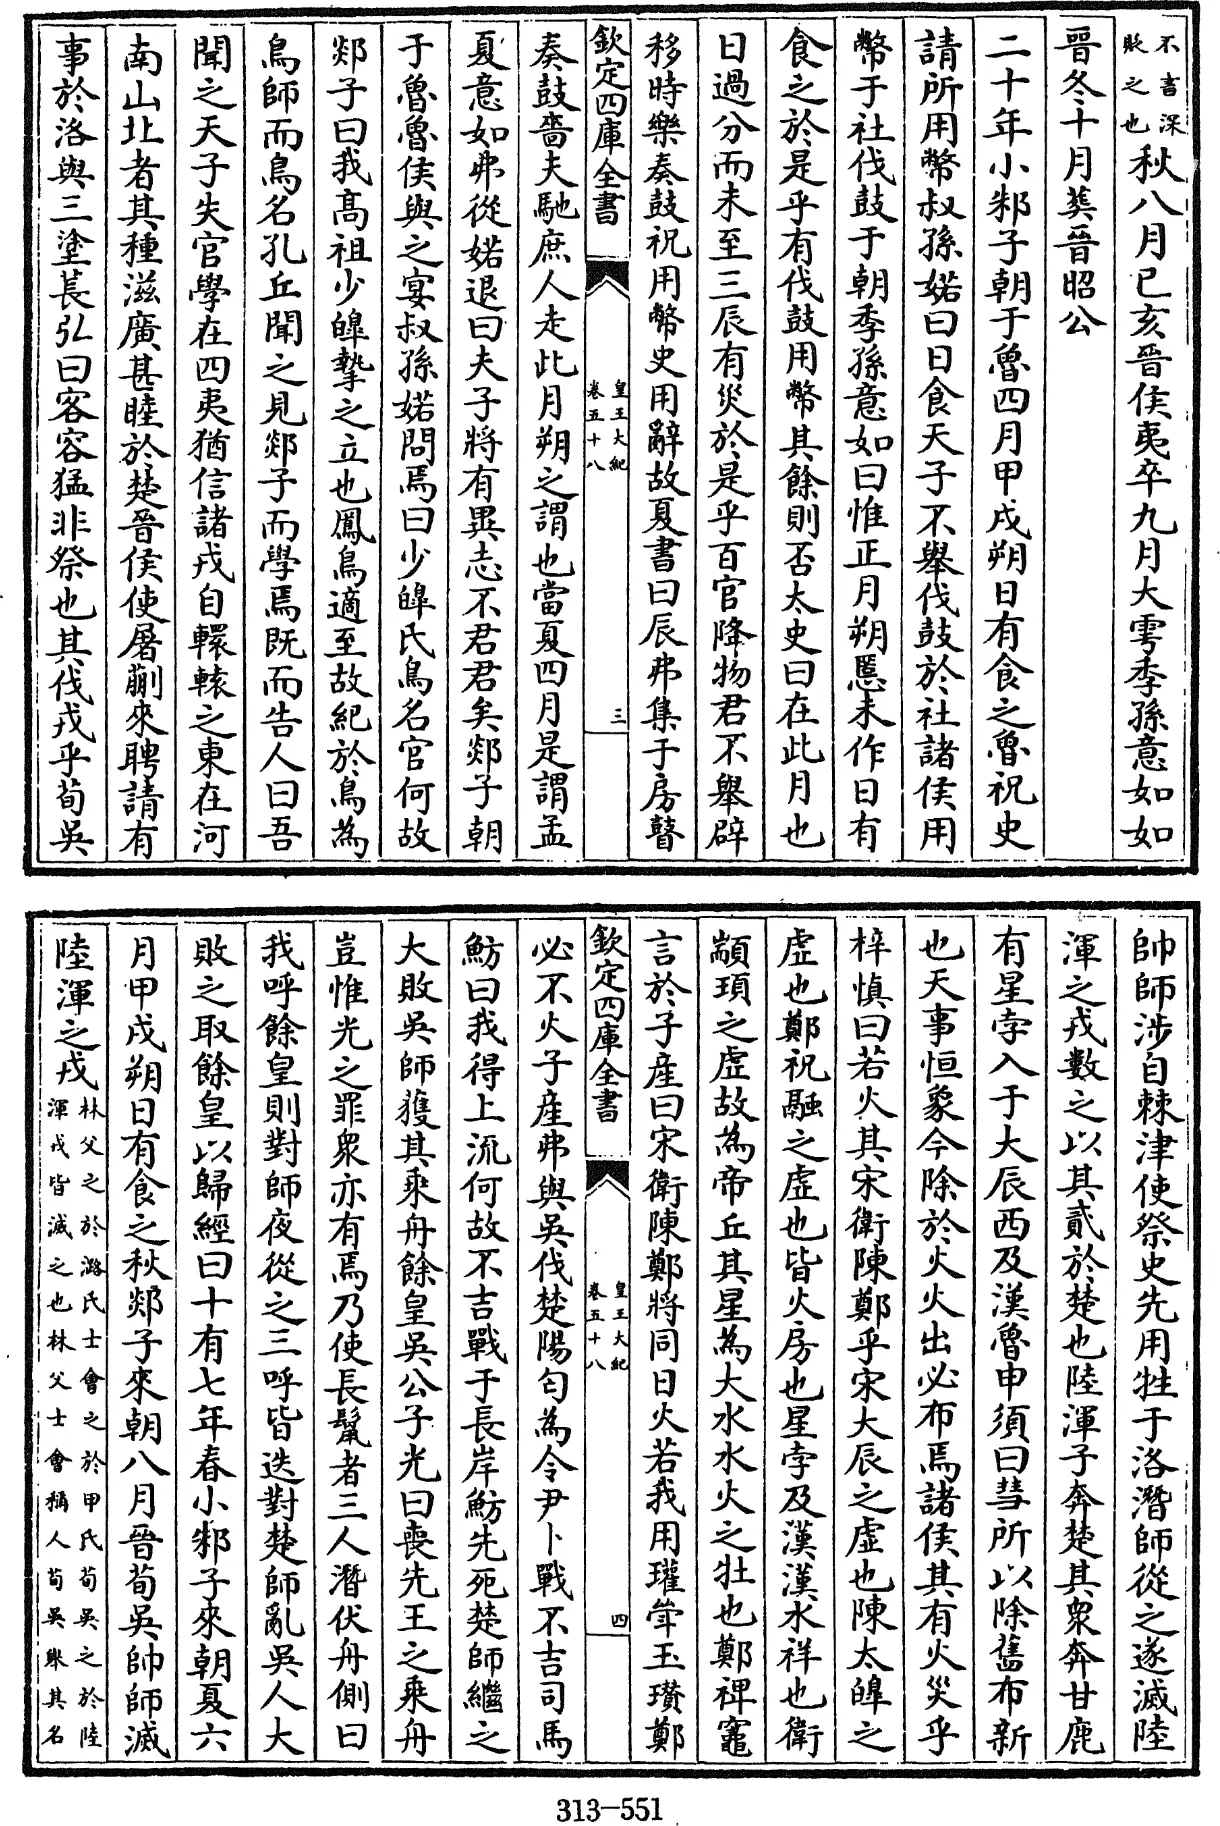 不書深
貶之也
秋八月己亥晉侯夷卒九月大雩季孫意如如
晉冬十月葬晉昭公
二十年小邾子朝于魯四月甲戌朔日有食之魯祝史
請所用幣叔孫婼曰日食天子不舉伐鼓於社諸侯用
幣于社伐鼓于朝季孫意如曰惟正月朔慝未作日有
食之於是乎有伐鼓用幣其餘則否太史曰在此月也
日過分而未至三辰有災於是乎百官降物君不舉辟
移時樂奏鼓祝用幣史用辭故夏書曰辰弗集于房瞽
欽定四庫全書
皇王大紀
卷五十八
三
奏鼓嗇夫馳庶人走此月朔之謂也當夏四月是謂孟
夏意如弗從婼退曰夫子將有異志不君君矣郯子朝
于魯魯侯與之宴叔孫婼問焉曰少皞氏鳥名官何故
郯子曰我高祖少皞摯之立也鳳鳥適至故紀於鳥為
鳥師而鳥名孔丘聞之見郯子而學焉既而告人曰吾
聞之天子失官學在四夷猶信諸戎自轘轅之東在河
南山北者其種滋廣甚睦於楚晉侯使屠蒯來聘請有
事於洛與三塗萇弘曰客容猛非祭也其伐戎乎荀吳
帥師涉自棘津使祭史先用牲于洛潛師從之遂滅陸
渾之戎數之以其貳於楚也陸渾子奔楚其衆奔甘鹿
有星孛入于大辰西及漢魯申須曰彗所以除舊布新
也天事恒象今除於火火出必布焉諸侯其有火災乎
梓慎曰若火其宋衛陳鄭乎宋大辰之虛也陳太皞之
虛也鄭祝融之虛也皆火房也星孛及漢漢水祥也衛
顓頊之虛故為帝丘其星為大水水火之牡也鄭裨竈
言於子產曰宋衛陳鄭將同日火若我用瓘斝玉瓚鄭
欽定四庫全書
皇王大紀
卷五十八
四
必不火子產弗與吳伐楚陽匄為令尹卜戰不吉司馬
魴曰我得上流何故不吉戰于長岸魴先死楚師繼之
大敗吳師獲其乘舟餘皇吳公子光曰喪先王之乘舟
豈惟光之罪衆亦有焉乃使長鬛者三人潛伏舟側曰
我呼餘皇則對師夜從之三呼皆迭對楚師亂吳人大
敗之取餘皇以歸經曰十有七年春小邾子來朝夏六
月甲戌朔日有食之秋郯子來朝八月晉荀吳帥師滅
陸渾之戎
林父之於潞氏士會之於甲氏荀吳之於陸
渾戎皆滅之也林父士會稱人荀吳舉其名
313-551